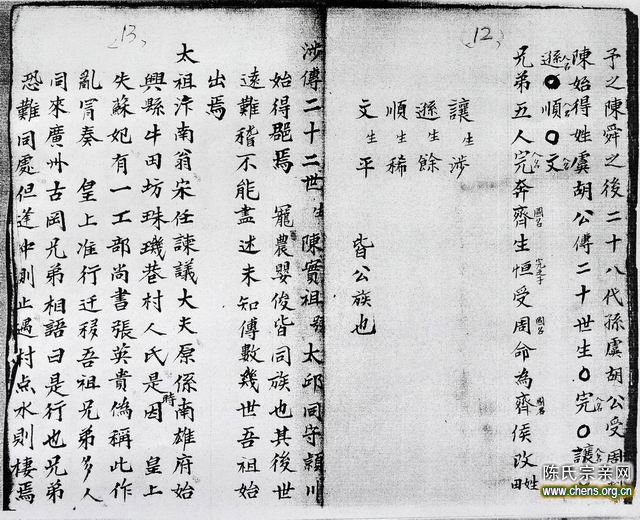 12
予之陳舜之後二十八代孫虞胡公受周
陳始得姓虞胡公傳二十世生〇完人名〇讓人名
遜人名〇順人名〇文人名
兄弟五人完人名奔齊國名生恒完之子受周國名命為齊國名侯改姓田
讓生涉
遜生餘
順生稀
文生平
皆公族也
13
涉傳二十二世生陳實祖号太邱同守潁川
始得郡焉 寵農嬰俊皆同族也其後世
遠難稽不能盡述未知傳數幾世吾祖始
出焉
太祖洊南翁宋任諫議大夫原係南雄府始
興縣牛田坊珠璣巷村人氏是時因 皇上
失蘇妃有一工部尚書張英貴偽稱此作
亂冐奏 皇上准行迁移吾祖兄弟多人
同來廣州古岡兄弟相語曰是行也兄弟
恐難同處但逢冲則止遇村点水則棲焉
陈氏宗亲网
www.chens.org.cn